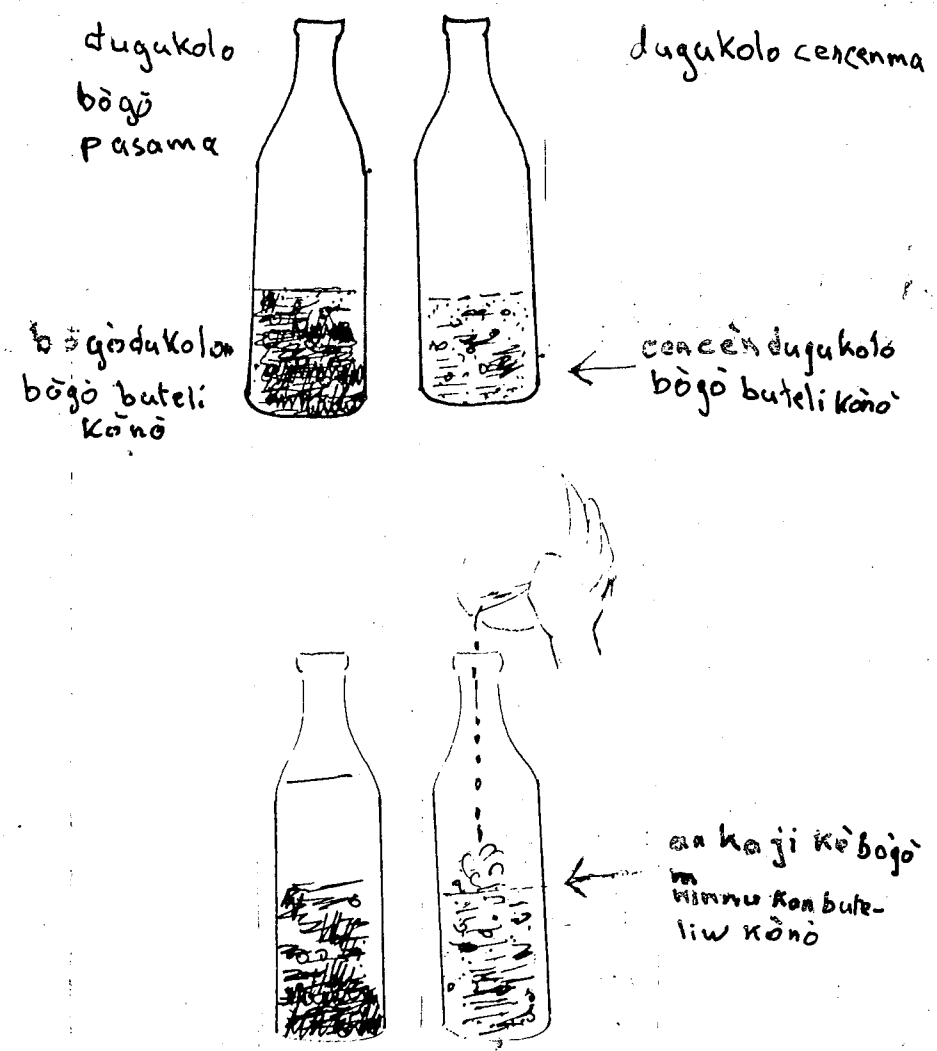 dugukolo
bògò
pasama
dugukolo cencenma
bògòdukolon
bògò buteli
kònò
cencèn dugukolo
bògò buteli kònò
an ka ji kè bògò
ninnu kan bute-
liw kònò